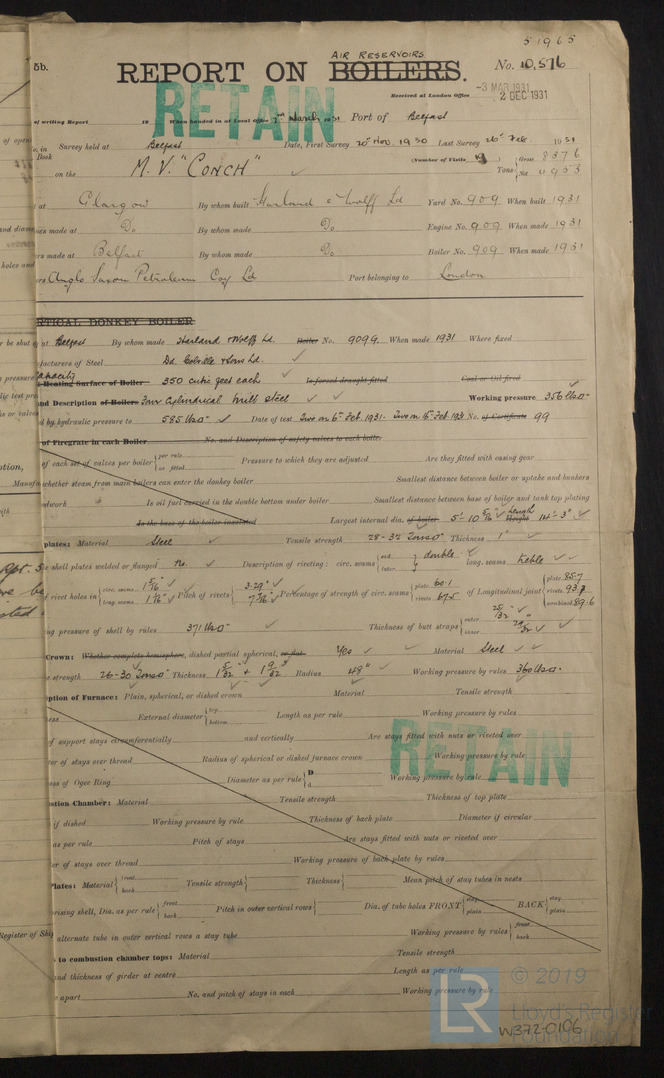 51965
5b.
AIR RESERVOIRS
REPORT ON BOILERS.
No. 10,576
RETAIN
Received at London Office -3 MAR 1931
2 DEC 1931
of writing Report 19 When handed in at Local Office 2nd March 1931 Port of Belfast
No. in Survey held at Belfast Date, First Survey 20th Nov. 1930 Last Survey 26th Feb. 1931
Book
on the M.V. "CONCH" (Number of Visits ) Tons Gross 8376
Net 4953
at Glasgow By whom built Harland & Wolff Ld Yard No. 909 When built 1931
made at Do By whom made Do Engine No. 909 When made 1931
made at Belfast By whom made Do Boiler No. 909 When made 1931
Anglo Saxon Petroleum Coy Ld Port belonging to London
VERTICAL DONKEY BOILER
at Belfast By whom made Harland & Wolff Ld. Boiler No. 909G. When made 1931 Where fixed
facturers of Steel Dd. Colville & Sons Ld.
Capacity
Heating Surface of Boiler 350 cubic feet each Is forced draught fitted Coal or Oil fired
nd Description of Boilers Four Cylindrical mild steel Working pressure 356 lbs□"
d by hydraulic pressure to 585 lbs□" Date of test Two on 6th Feb. 1931. Two on Feb. 1931 No. of Certificate 99
of Firegrate in each Boiler No. and Description of safety valves to each boiler
of each set of valves per boiler per rule
as fitted Pressure to which they are adjusted Are they fitted with easing gear
whether steam from main boilers can enter the donkey boiler Smallest distance between boiler or uptake and bunkers
odwork Is oil fuel carried in the double bottom under boiler Smallest distance between base of boiler and tank top plating
Is the base of the boiler insulated Largest internal dia. of boiler 5'-10 5/16" Length Height 14'-3"
plates: Material Steel Tensile strength 28-32 Tons□" Thickness 1"
shell plates welded or flanged No. Description of riveting: circ. seams end
inter double long. seams treble
of rivet holes in circ. seams 1 5/16"
long. seams 1 5/16" Pitch of rivets 3.29"
7 3/16" Percentage of strength of circ. seams plate 60.1
rivets 67.5 of Longitudinal joint plate 85.7
rivets 93.8
combined 89.6
ng pressure of shell by rules 371 lbs□" Thickness of butt straps outer 25/32"
inner 29/32"
Crown: Whether complete hemisphere, dished partial spherical, or flat Yes Material Steel
strength 26-30 Tons□" Thickness 1 5/32" + 1 9/32" Radius 48" Working pressure by rules 360 lbs□".
ption of Furnace: Plain, spherical, or dished crown Material Tensile strength
ness External diameter top
bottom Length as per rule Working pressure by rules
of support stays circumferentially and vertically Are stays fitted with nuts or riveted over
RETAIN
er of stays over thread Radius of spherical or dished furnace crown Working pressure by rule
ness of Ogee Ring Diameter as per rule D
d Working pressure by rule
ustion Chamber: Material Tensile strength Thickness of top plate
if dished Working pressure by rule Thickness of back plate Diameter if circular
as per rule Pitch of stays Are stays fitted with nuts or riveted over
er of stays over thread Working pressure of back plate by rules
Plates: Material front
back Tensile strength Thickness Mean pitch of stay tubes in nests
prising shell, Dia. as per rule front
back Pitch in outer vertical rows Dia. of tube holes FRONT stay
plain BACK stay
plain
Register of Ship
alternate tube in outer vertical rows a stay tube Working pressure by rules front
back
to combustion chamber tops: Material Tensile strength
and thickness of girder at centre Length as per rule
apart No. and pitch of stays in each Working pressure by rule
LR
© 2019
Lloyd's Register
Foundation
W372-0106